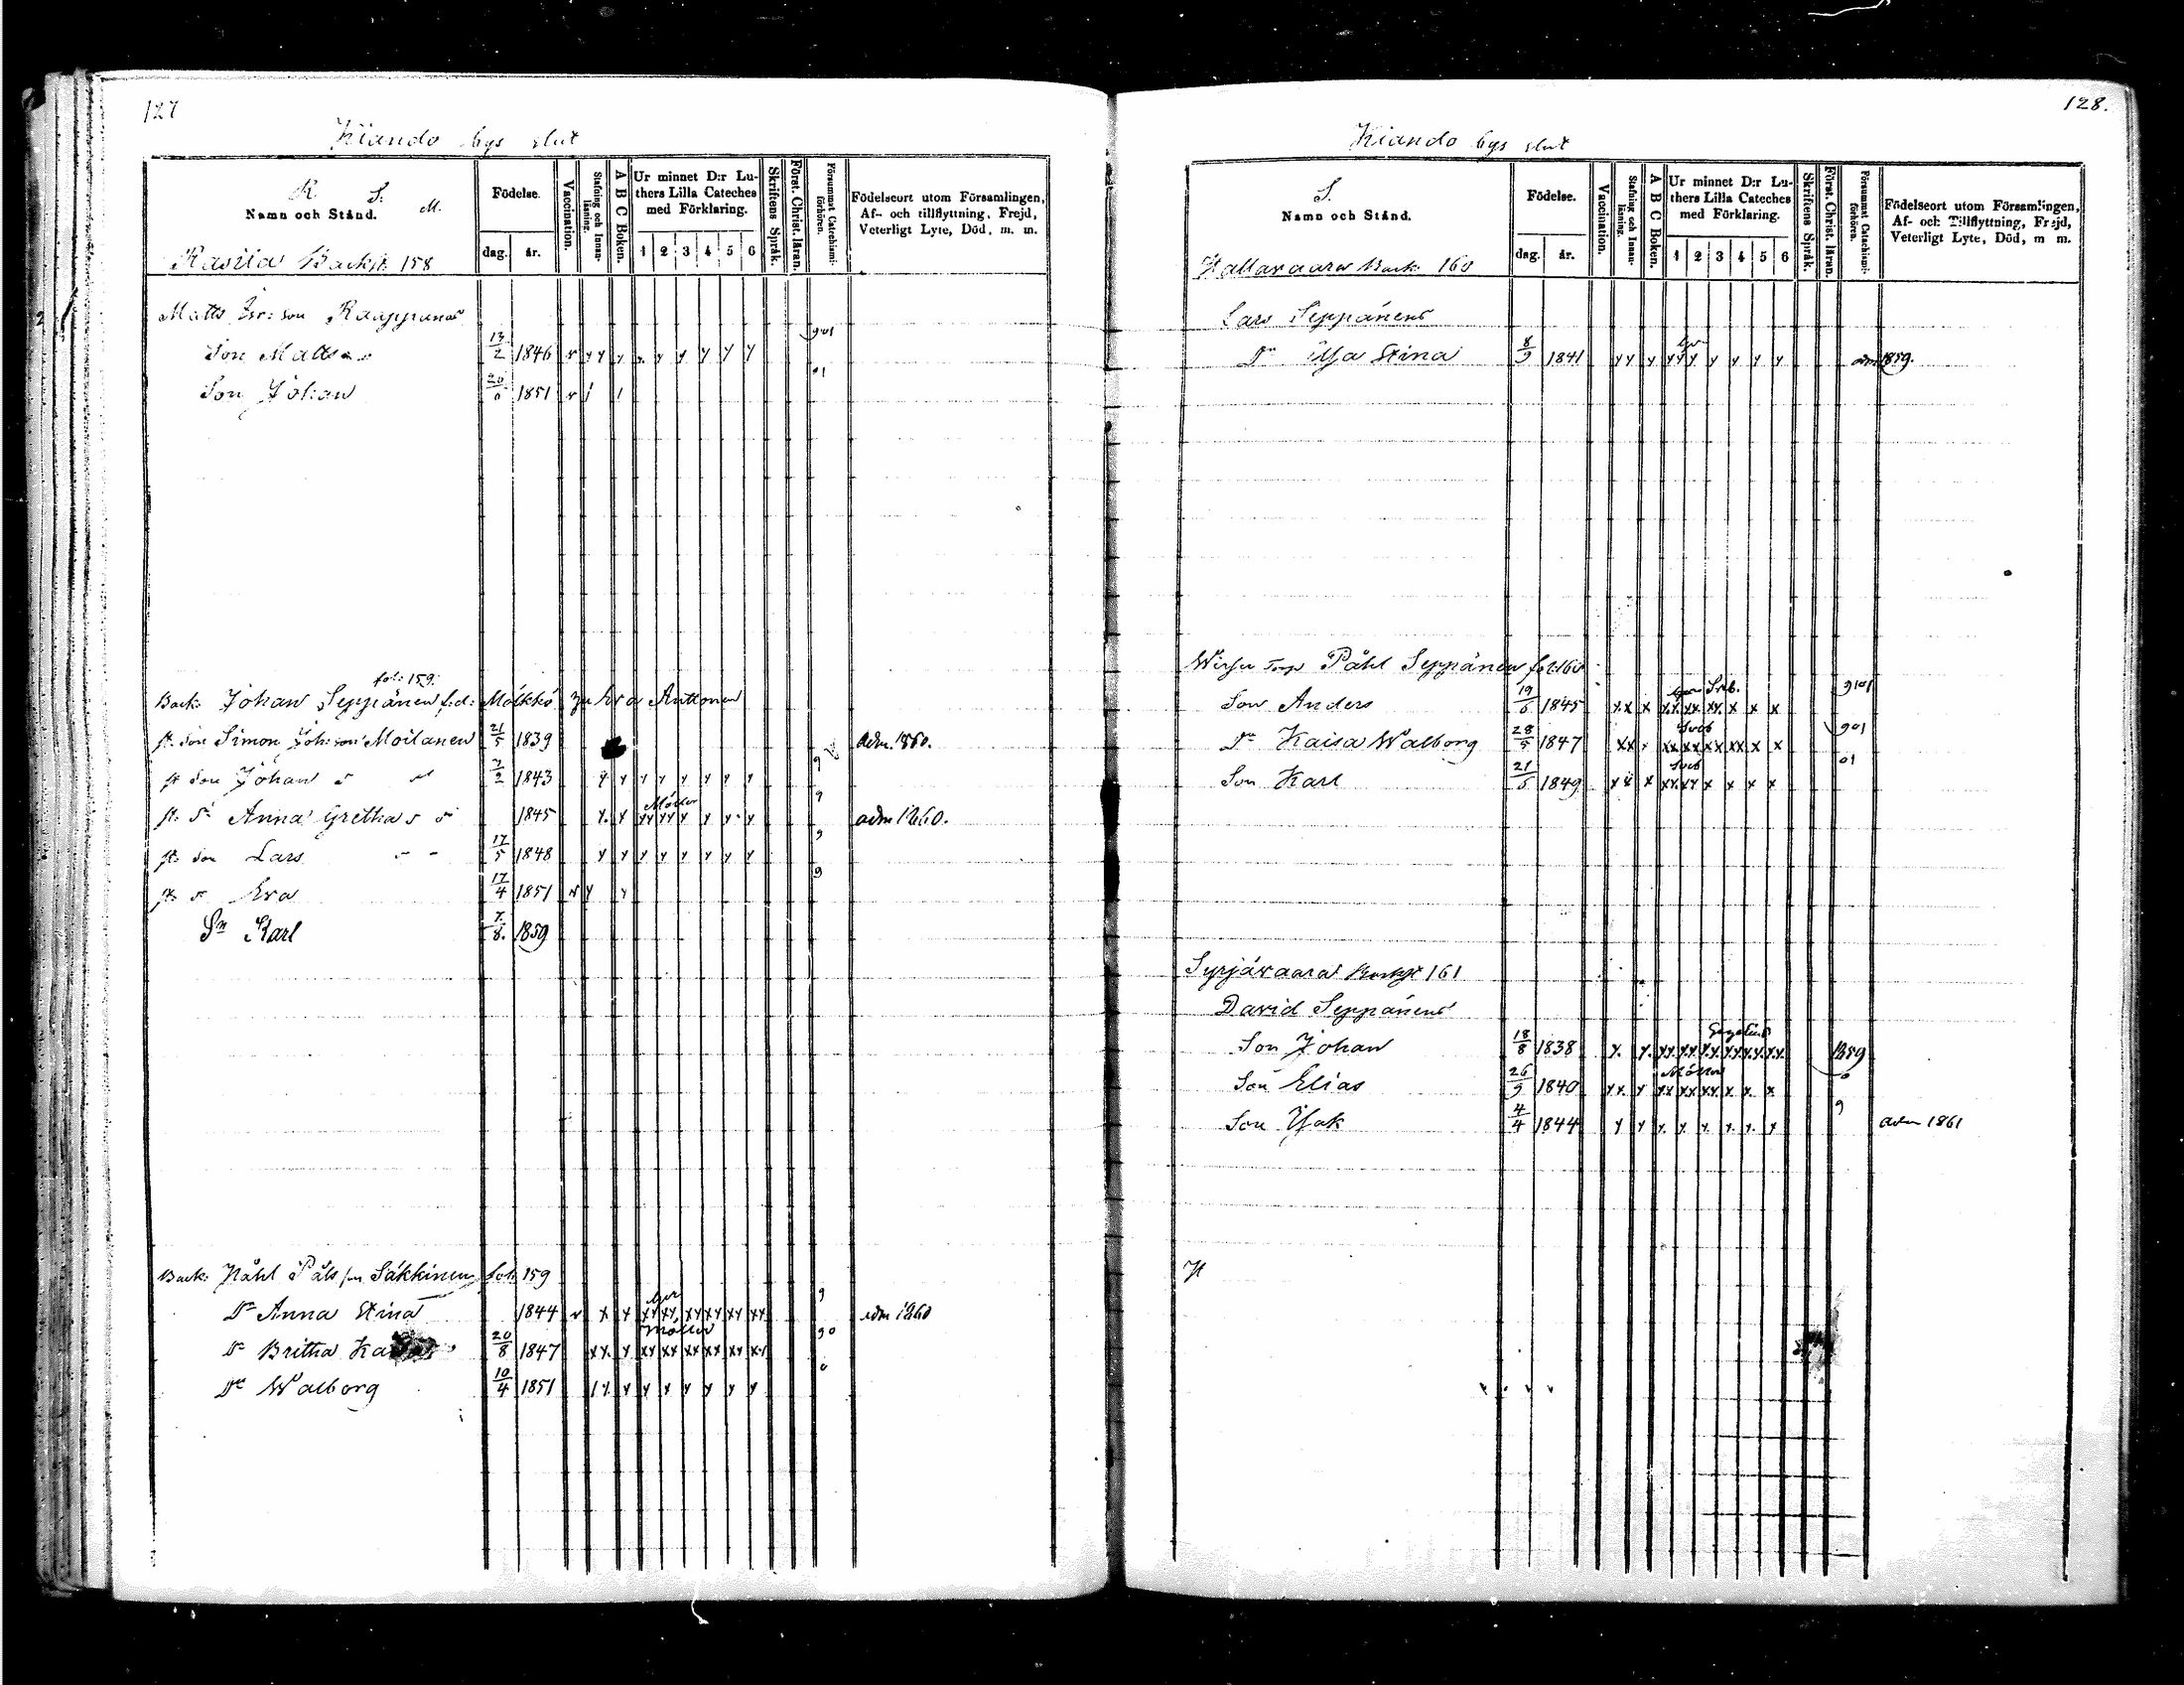 127
Kiando bys slut
R. S. M.
Namn och Stånd.
Födelse.
dag. år.
Vaccination.
Stafning och Innanläsning.
A B C Boken.
Ur minnet D:r Luthers Lilla Cateches med Förklaring.
1 2 3 4 5 6
Skriftens Språk.
Först. Christ. läran.
Försummat Catechismiförhören.
Födelseort utom Församlingen, Af- och tillflyttning, Frejd, Veterligt Lyte, Död, m. m.
Rasila Backst. 158
Matts son Raappana
Son Matts 13/2 1846 901
Son Johan 20 1851 01
fol: 159.
Back: Johan Seppänen Mölkkö Eva Anttonen
st. son Simon Joh: son Moilanen 21/5 1839 adm. 1860.
st son Johan 7/2 1843 9
st. Dr Anna Gretha 1845 9 adm 1860.
st. son Lars 17/5 1848 9
st. Dr Eva 17/4 1851 9
Sn Karl 7/8. 1859
Back: Påhl Påls son Säkkinen fol: 159
Dr Anna Stina 1844 9 adm 1860
Dr Britha 20/8 1847 90
Dr Walborg 10/4 1851 0
128.
Kiando bys slut
S.
Namn och Stånd.
Födelse.
dag. år.
Vaccination.
Stafning och Innanläsning.
A B C Boken.
Ur minnet D:r Luthers Lilla Cateches med Förklaring.
1 2 3 4 5 6
Skriftens Språk.
Först. Christ. läran.
Försummat Catechismiförhören.
Födelseort utom Församlingen, Af- och Tillflyttning, Frejd, Veterligt Lyte, Död, m m.
Hallavaara Back: 160
Lars Seppänens
Dr Ulla Stina 8/9 1841 adm 1859.
Torp Påhl Seppänen fol: 160
Son Anders 19/6 1845 9101
Dr Kaisa Walborg 28/5 1847 901
Son Karl 21/5 1849 01
Syrjävaara Backst 161
David Seppänens
Son Johan 18/8 1838 1859
Son Elias 26/9 1840 0
Son Isak 4/4 1844 9 adm 1861